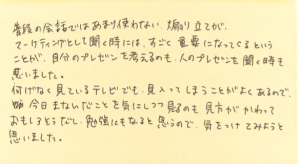 普段の会話ではあまり使わない、煽り立てが、
マーケティングとして聞く時には、すごく重要になってくるという
ことが、自分のプレゼンを考えるのも、人のプレゼンを聞く時も
思いました。
何げなく見ているテレビでも、見入ってしまうことがよくあるので、
今日まなんだことを気にしつつ見るのも見方がかわって
おもしろそうだし、勉強にもなると思うので、気をつけてみようと
思いました。